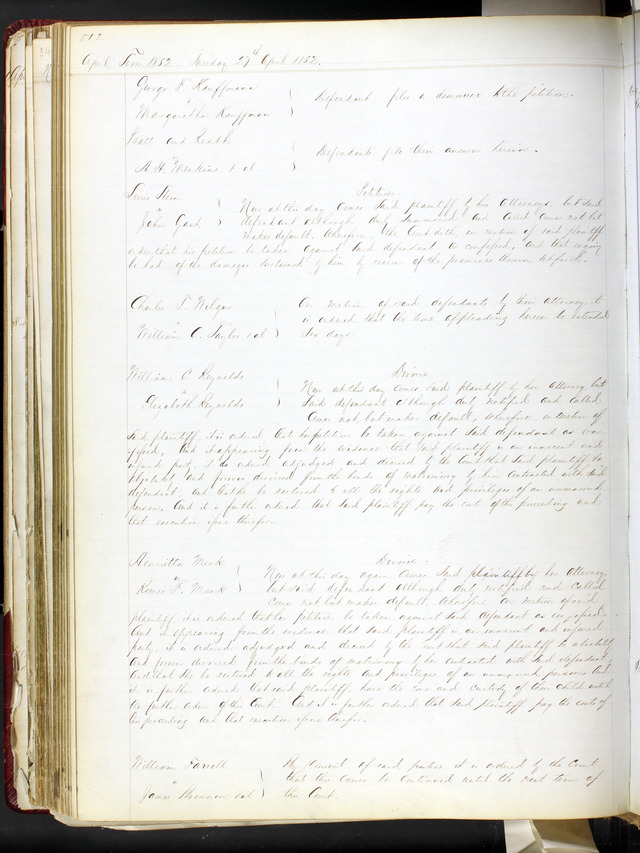 512
April Term 1852 Tuesday 27th April 1852.
George F. Kauffmann
vs
Margaretha Kauffman
Defendant files a demurrer to the petition.
Scott and
vs
A. H. Menkins et al
Defendants file their answer herein.
Petition
vs
John Gast
Now at this day comes said plaintiff by his Attorneys, but said
defendant although duly summoned and called comes not but
makes default. Wherefore, the Court doth on motion of said plaintiff
order that his petition be taken against said defendant as confessed, and that inquiry
be had of the damages sustained by him by reason of the premises therein set forth.
Charles F.
vs
William C. Taylor et al
On motion of said defendants by their Attorney it
is ordered that the time of pleading herein be extended
six days.
William C Reynolds
vs
Elizabeth Reynolds
Divorce
Now at this day comes said plaintiff by his Attorney but
said defendant although duly notified and called
comes not, but makes default, wherefore on motion of
said plaintiff, it is ordered that his petition be taken against said defendant as con-
fessed, And it appearing from the evidence that said plaintiff is an innocent and
injured party, it is ordered adjudged and decreed by the Court that said plaintiff be
absolutely and forever divorced from the bonds of matrimony by him contracted with said
defendant, and that he be restored to all the rights and privileges of an unmarried
person. And it is further ordered that said plaintiff pay the costs of this proceeding and
that execution issue therefor.
Henrietta Meek
vs
F. Meek
Divorce
Now at this day again comes said plaintiff by her Attorney
but said defendant although duly notified and called
comes not but makes default, wherefore on motion of said
plaintiff it is ordered that her petition be taken against said defendant as confessed,
And it appearing from the evidence that said plaintiff is an innocent and injured
party, it is ordered adjudged and decreed by the court that said plaintiff be absolutely
and forever divorced from the bonds of matrimony by her contracted with said defendant
and that she be restored to all the rights and privileges of an unmarried person. And
it is further ordered that said plaintiff have the care and custody of their child until
the further order of the Court. And it is further ordered that said plaintiff pay the costs of
this proceeding and that execution issue therefor.
William Farrell
vs
James et al
By consent of said parties it is ordered by the Court
that this cause be continued until the next term of
this Court.